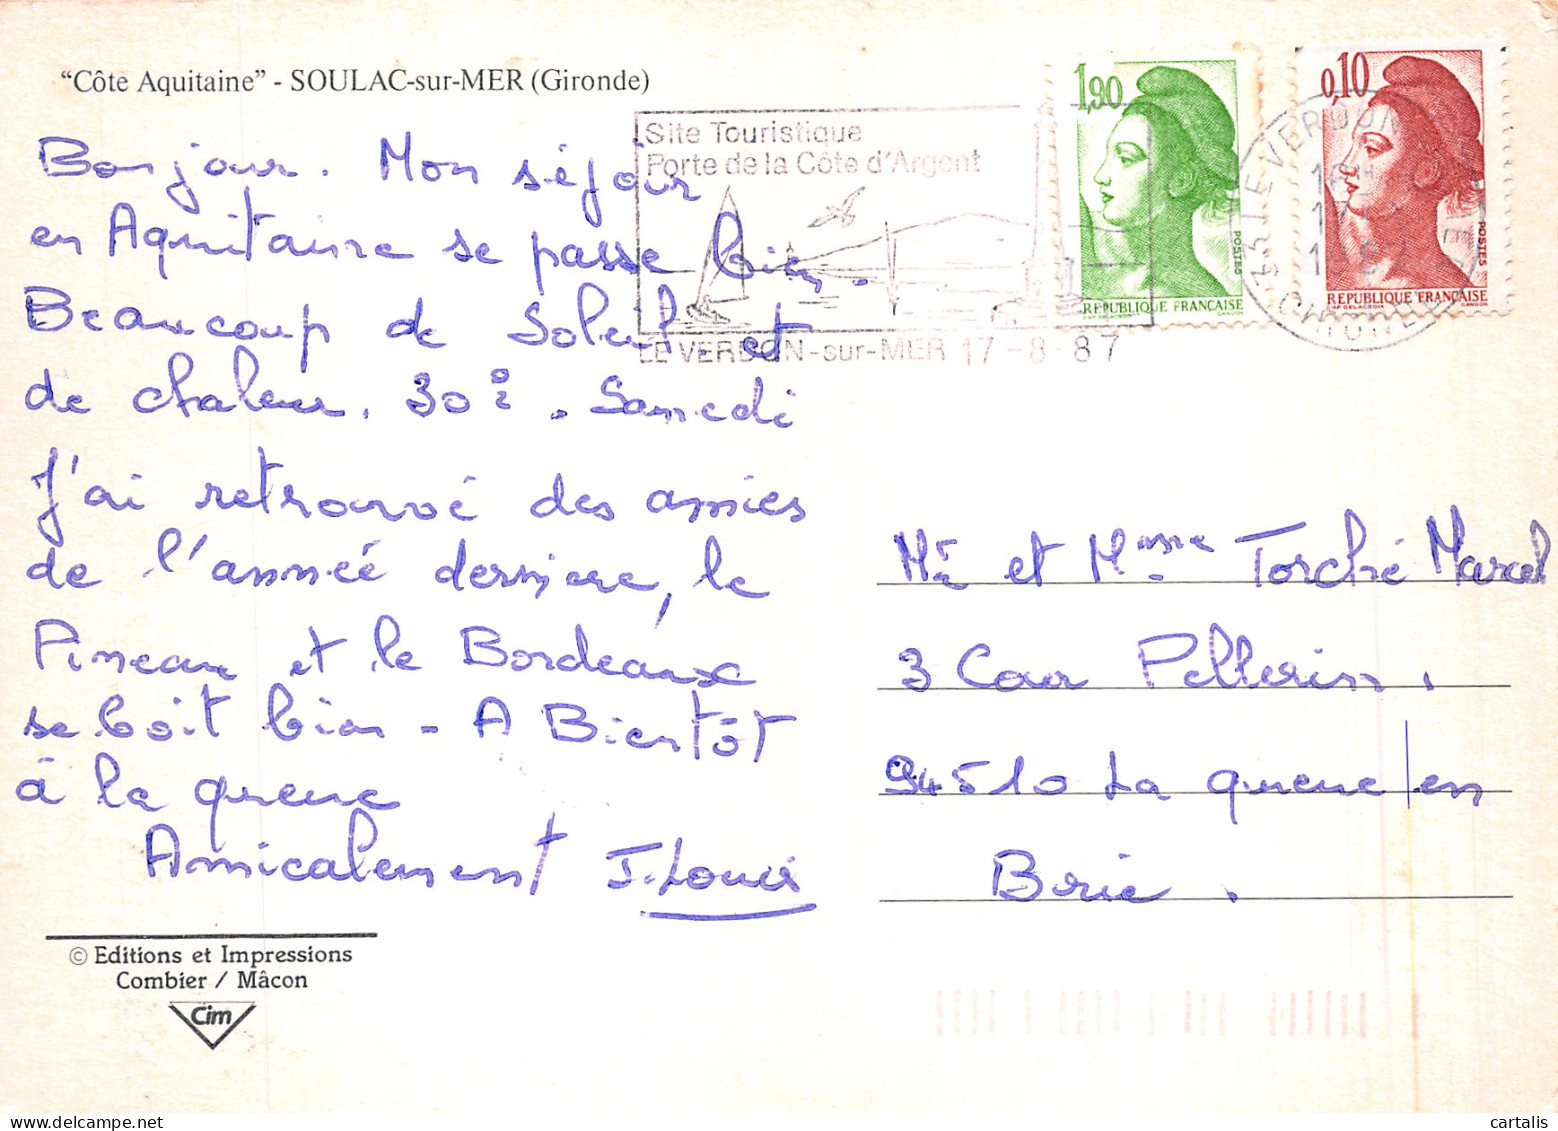 "Côte Aquitaine" - SOULAC-sur-MER (Gironde)
Bonjour. Mon séjour
en Aquitaine se passe bien.
Beaucoup de Soleil et
de chaleur. 30°. Samedi
J'ai retrouvé des amies
de l'année derniere, le
Pineau et le Bordeaux
se boit bien - A Bientôt
à la queue
Amicalement J. Louis
© Editions et Impressions
Combier / Mâcon
Cim
Site Touristique
Porte de la Côte d'Argent
LE VERDON-sur-MER 17-8-87
1,90
POSTES
REPUBLIQUE FRANÇAISE
0,10
POSTES
REPUBLIQUE FRANÇAISE
33 LE VERDON
GIRONDE
Mr et Mme Torché Marcel
3 Cour Pellerin.
94510 La queue en
Brie.
cartalis